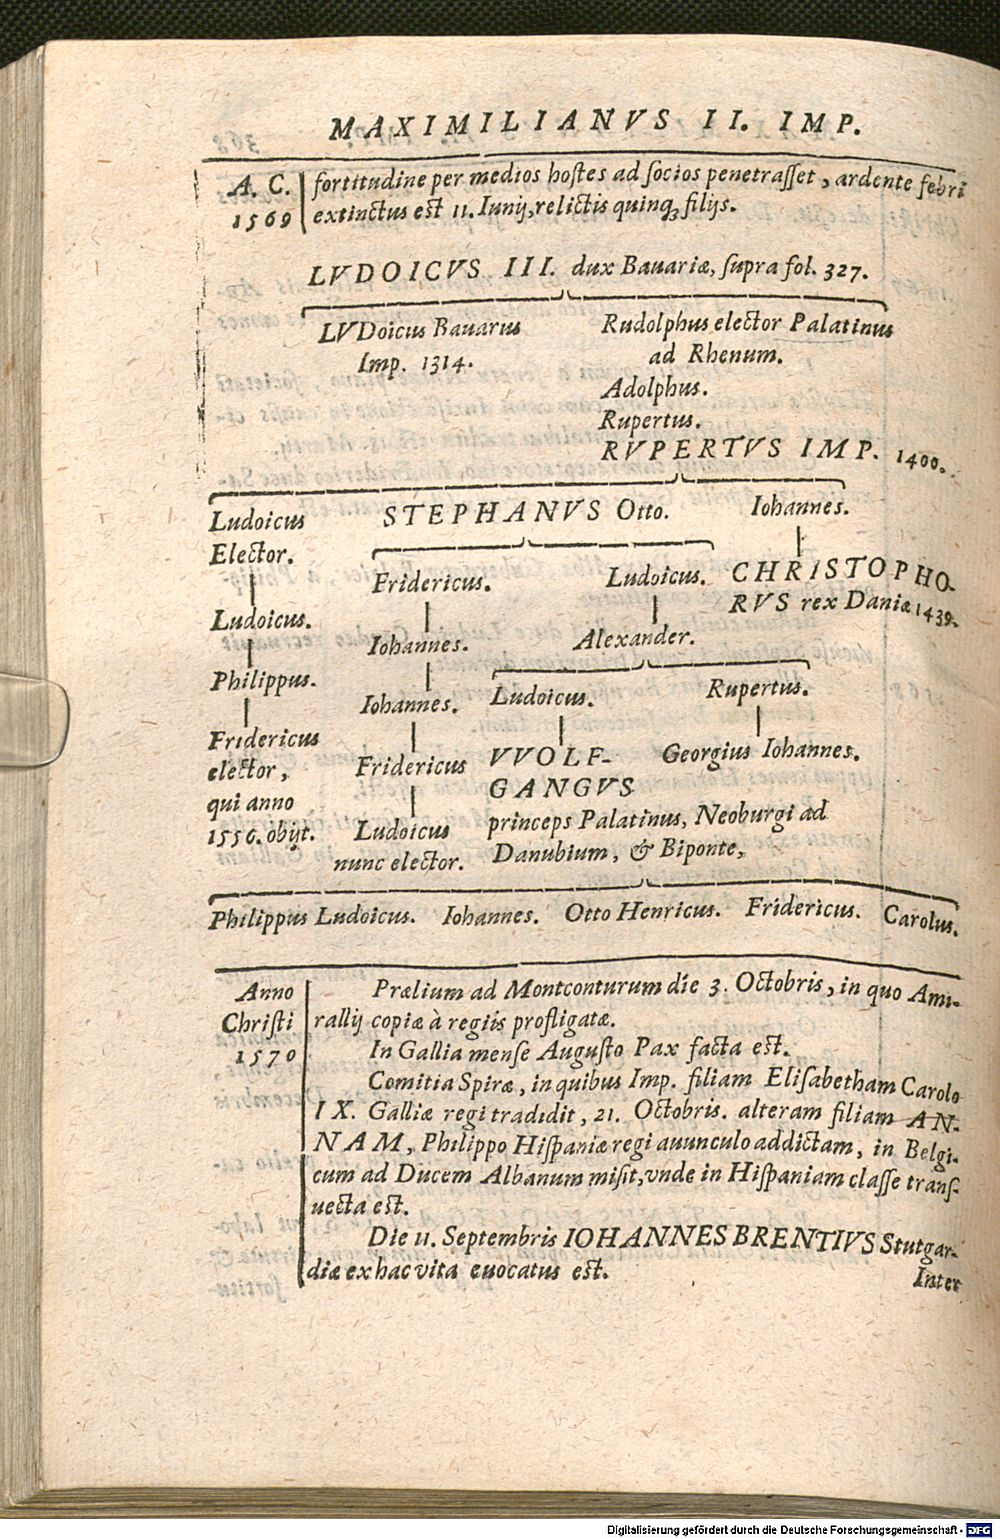 MAXIMILIANVS II. IMP.
A. C.
1569
fortitudine per medios hostes ad socios penetrasset, ardente febri
extinctus est 11. Iunij, relictis quinq; filijs.
LVDOICVS III. dux Bauariæ, supra fol. 327.
LVDoicus Bauarus
Imp. 1314.
Rudolphus elector Palatinus
ad Rhenum.
Adolphus.
Rupertus.
RVPERTVS IMP. 1400.
Ludoicus
Elector.
STEPHANVS Otto.
Iohannes.
Fridericus.
Ludoicus.
CHRISTOPHO-
RVS rex Daniæ 1439.
Ludoicus.
Iohannes.
Alexander.
Philippus.
Iohannes.
Ludoicus.
Rupertus.
Fridericus
elector,
qui anno
1556. obijt.
Fridericus
Ludoicus
nunc elector.
VVOLF-
GANGVS
Georgius Iohannes.
princeps Palatinus, Neoburgi ad
Danubium, & Biponte,
Philippus Ludoicus. Iohannes. Otto Henricus. Fridericus. Carolus.
Anno
Christi
1570
Prælium ad Montconturum die 3. Octobris, in quo Ami-
rallij copiæ à regiis profligatæ.
In Gallia mense Augusto Pax facta est.
Comitia Spiræ, in quibus Imp. filiam Elisabetham Carolo
IX. Galliæ regi tradidit, 21. Octobris. alteram filiam AN-
NAM, Philippo Hispaniæ regi auunculo addictam, in Belgi-
cum ad Ducem Albanum misit, vnde in Hispaniam classe trans-
uecta est.
Die 11. Septembris IOHANNES BRENTIVS Stutgar-
diæ ex hac vita euocatus est.
Inter
Digitalisierung gefördert durch die Deutsche Forschungsgemeinschaft - DFG